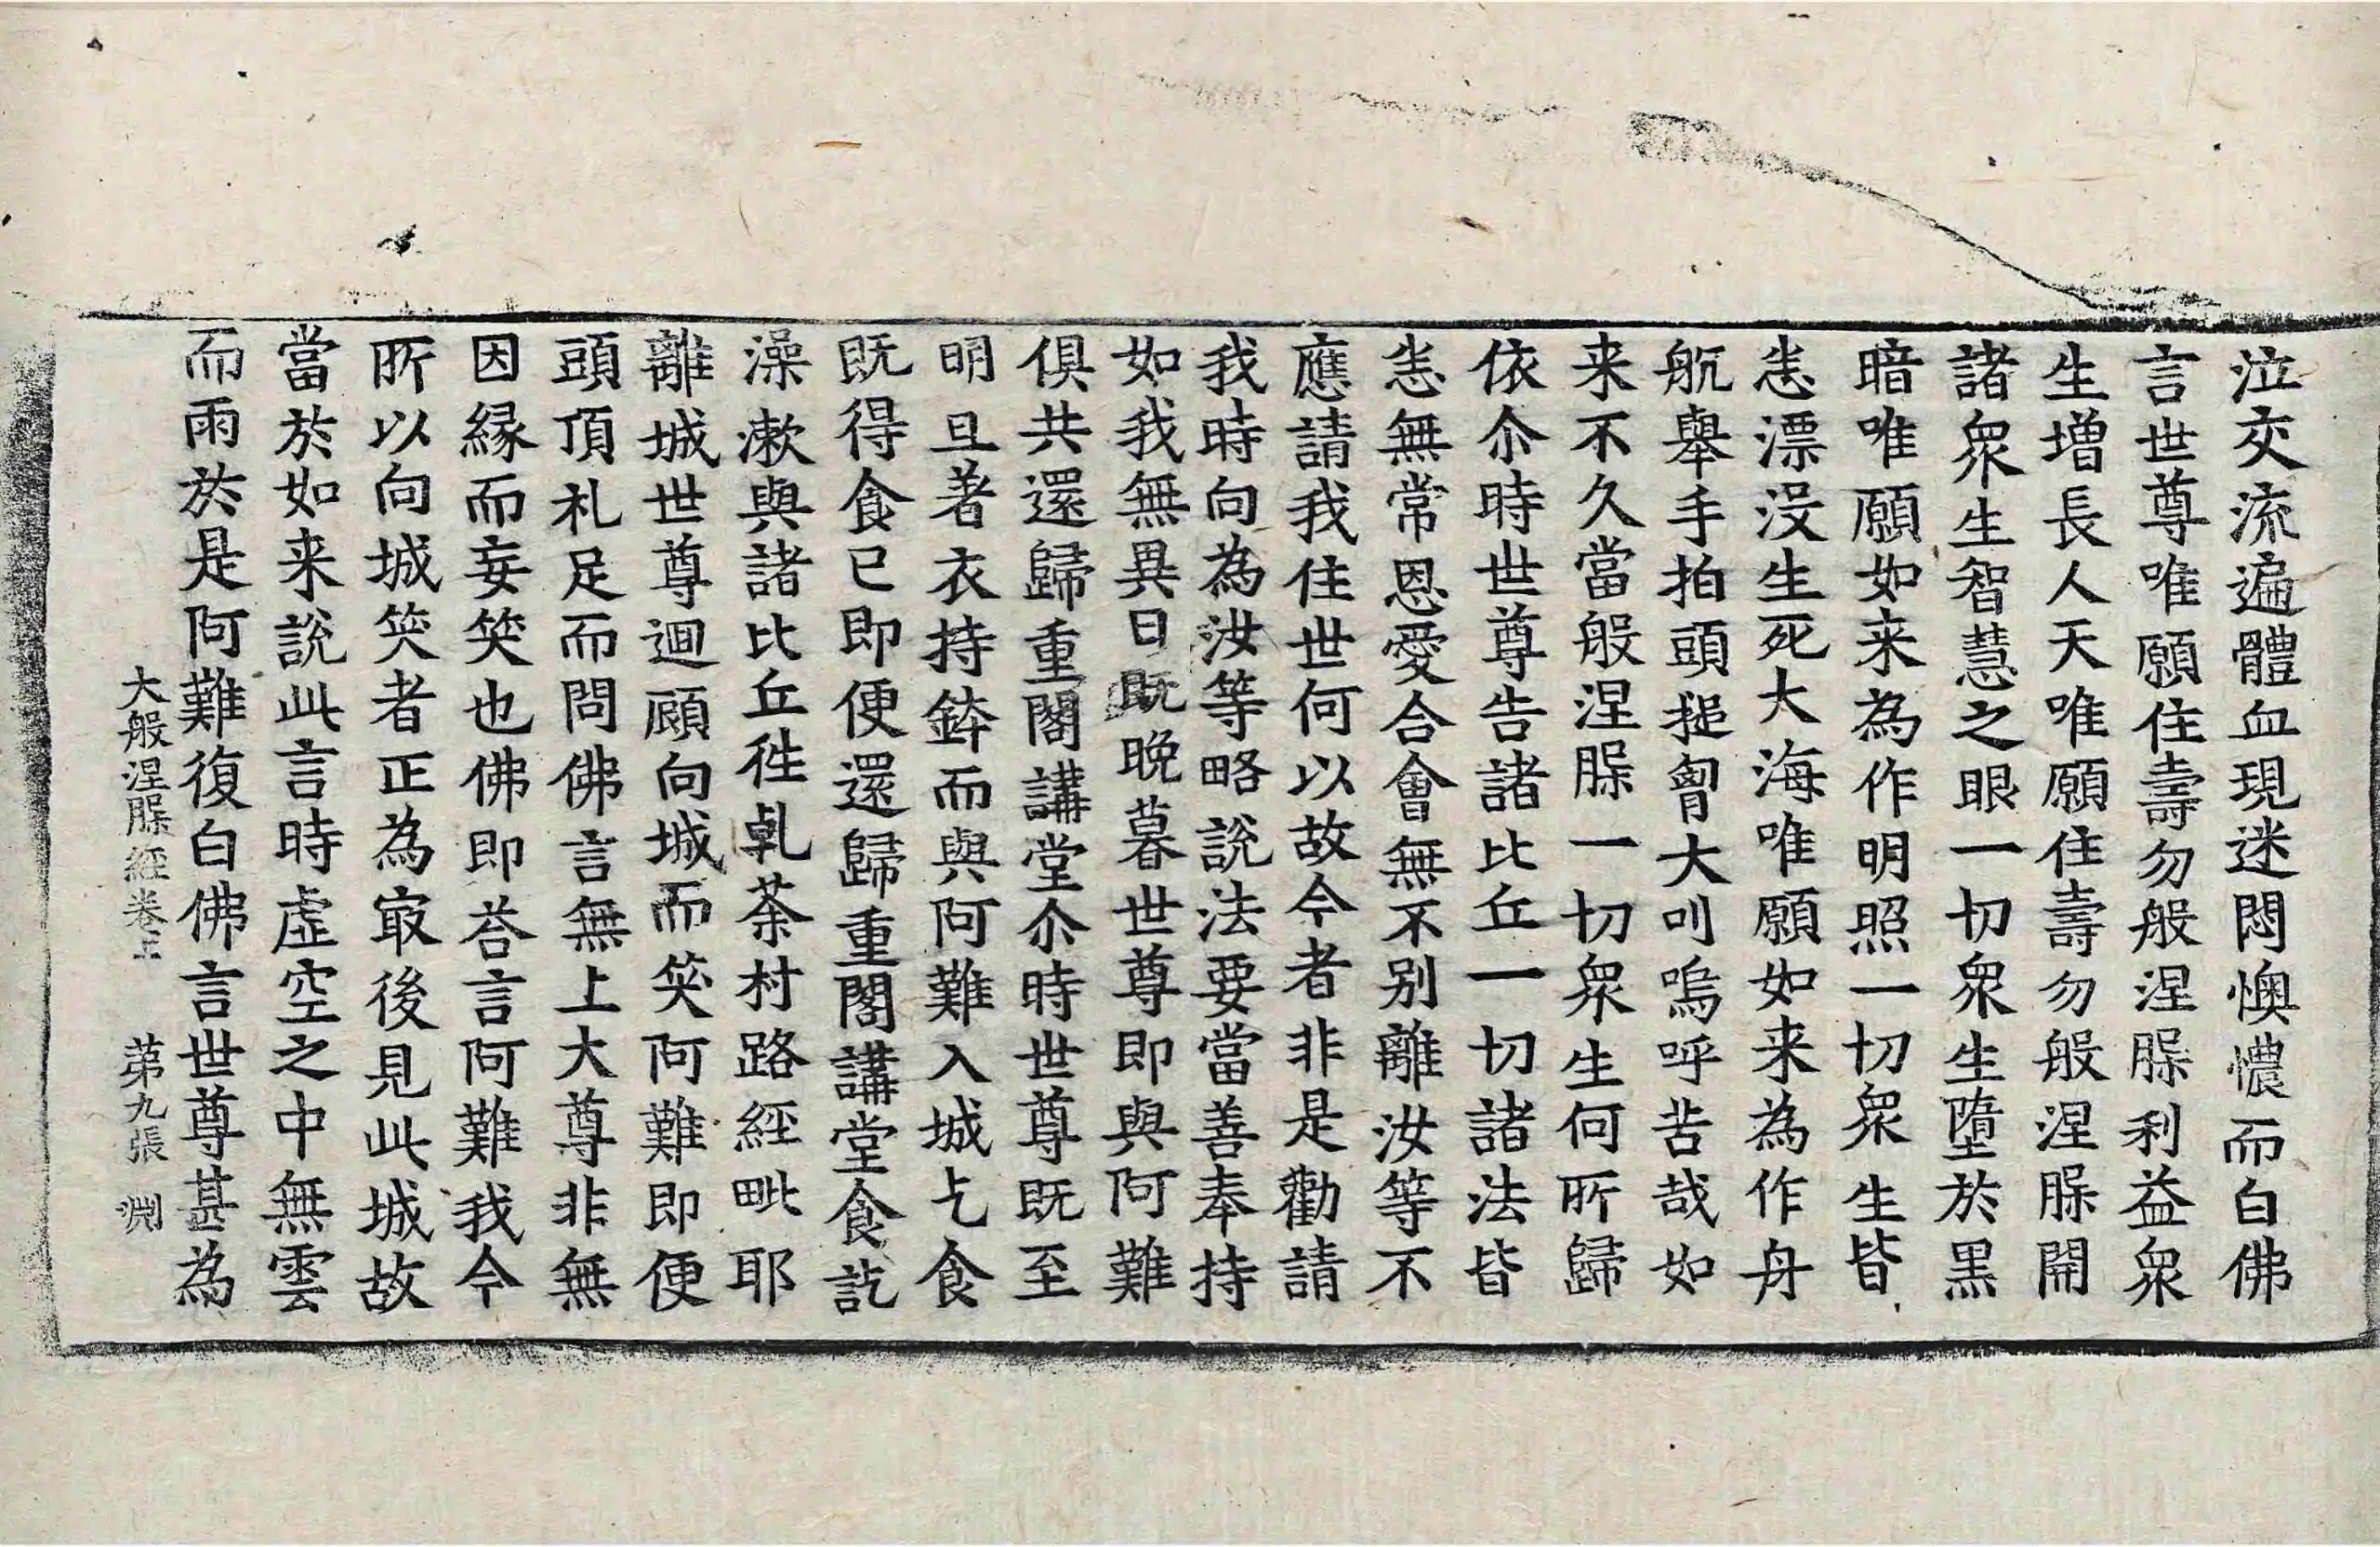 泣交流遍體血現迷悶懊憹而白佛
言世尊唯願住壽勿般涅槃利益衆
生增長人天唯願住壽勿般涅槃開
諸衆生智慧之眼一切衆生墮於黒
暗唯願如来為作明照一切衆生皆
恙漂没生死大海唯願如来為作舟
航舉手拍頭搥𦚾大叫嗚呼苦哉如
来不久當般涅槃一切衆生何所歸
依尒時世尊告諸比丘一切諸法皆
恙無常恩愛合會無不别離汝等不
應請我住世何以故今者非是勸請
我時向為汝等略說法要當善奉持
如我無異日既晚暮世尊即與阿難
俱共還歸重閣講堂尒時世尊既至
明旦著衣持鉢而與阿難入城乞食
既得食已即便還歸重閣講堂食訖
澡漱與諸比丘徃乹荼村路經毗耶
離城世尊迴顧向城而笑阿難即便
頭頂礼足而問佛言無上大尊非無
因縁而妄笑也佛即荅言阿難我今
所以向城笑者正為㝡後見此城故
當於如来說此言時虚空之中無雲
而雨於是阿難復白佛言世尊甚為
大般涅槃經卷上 苐九張 渊